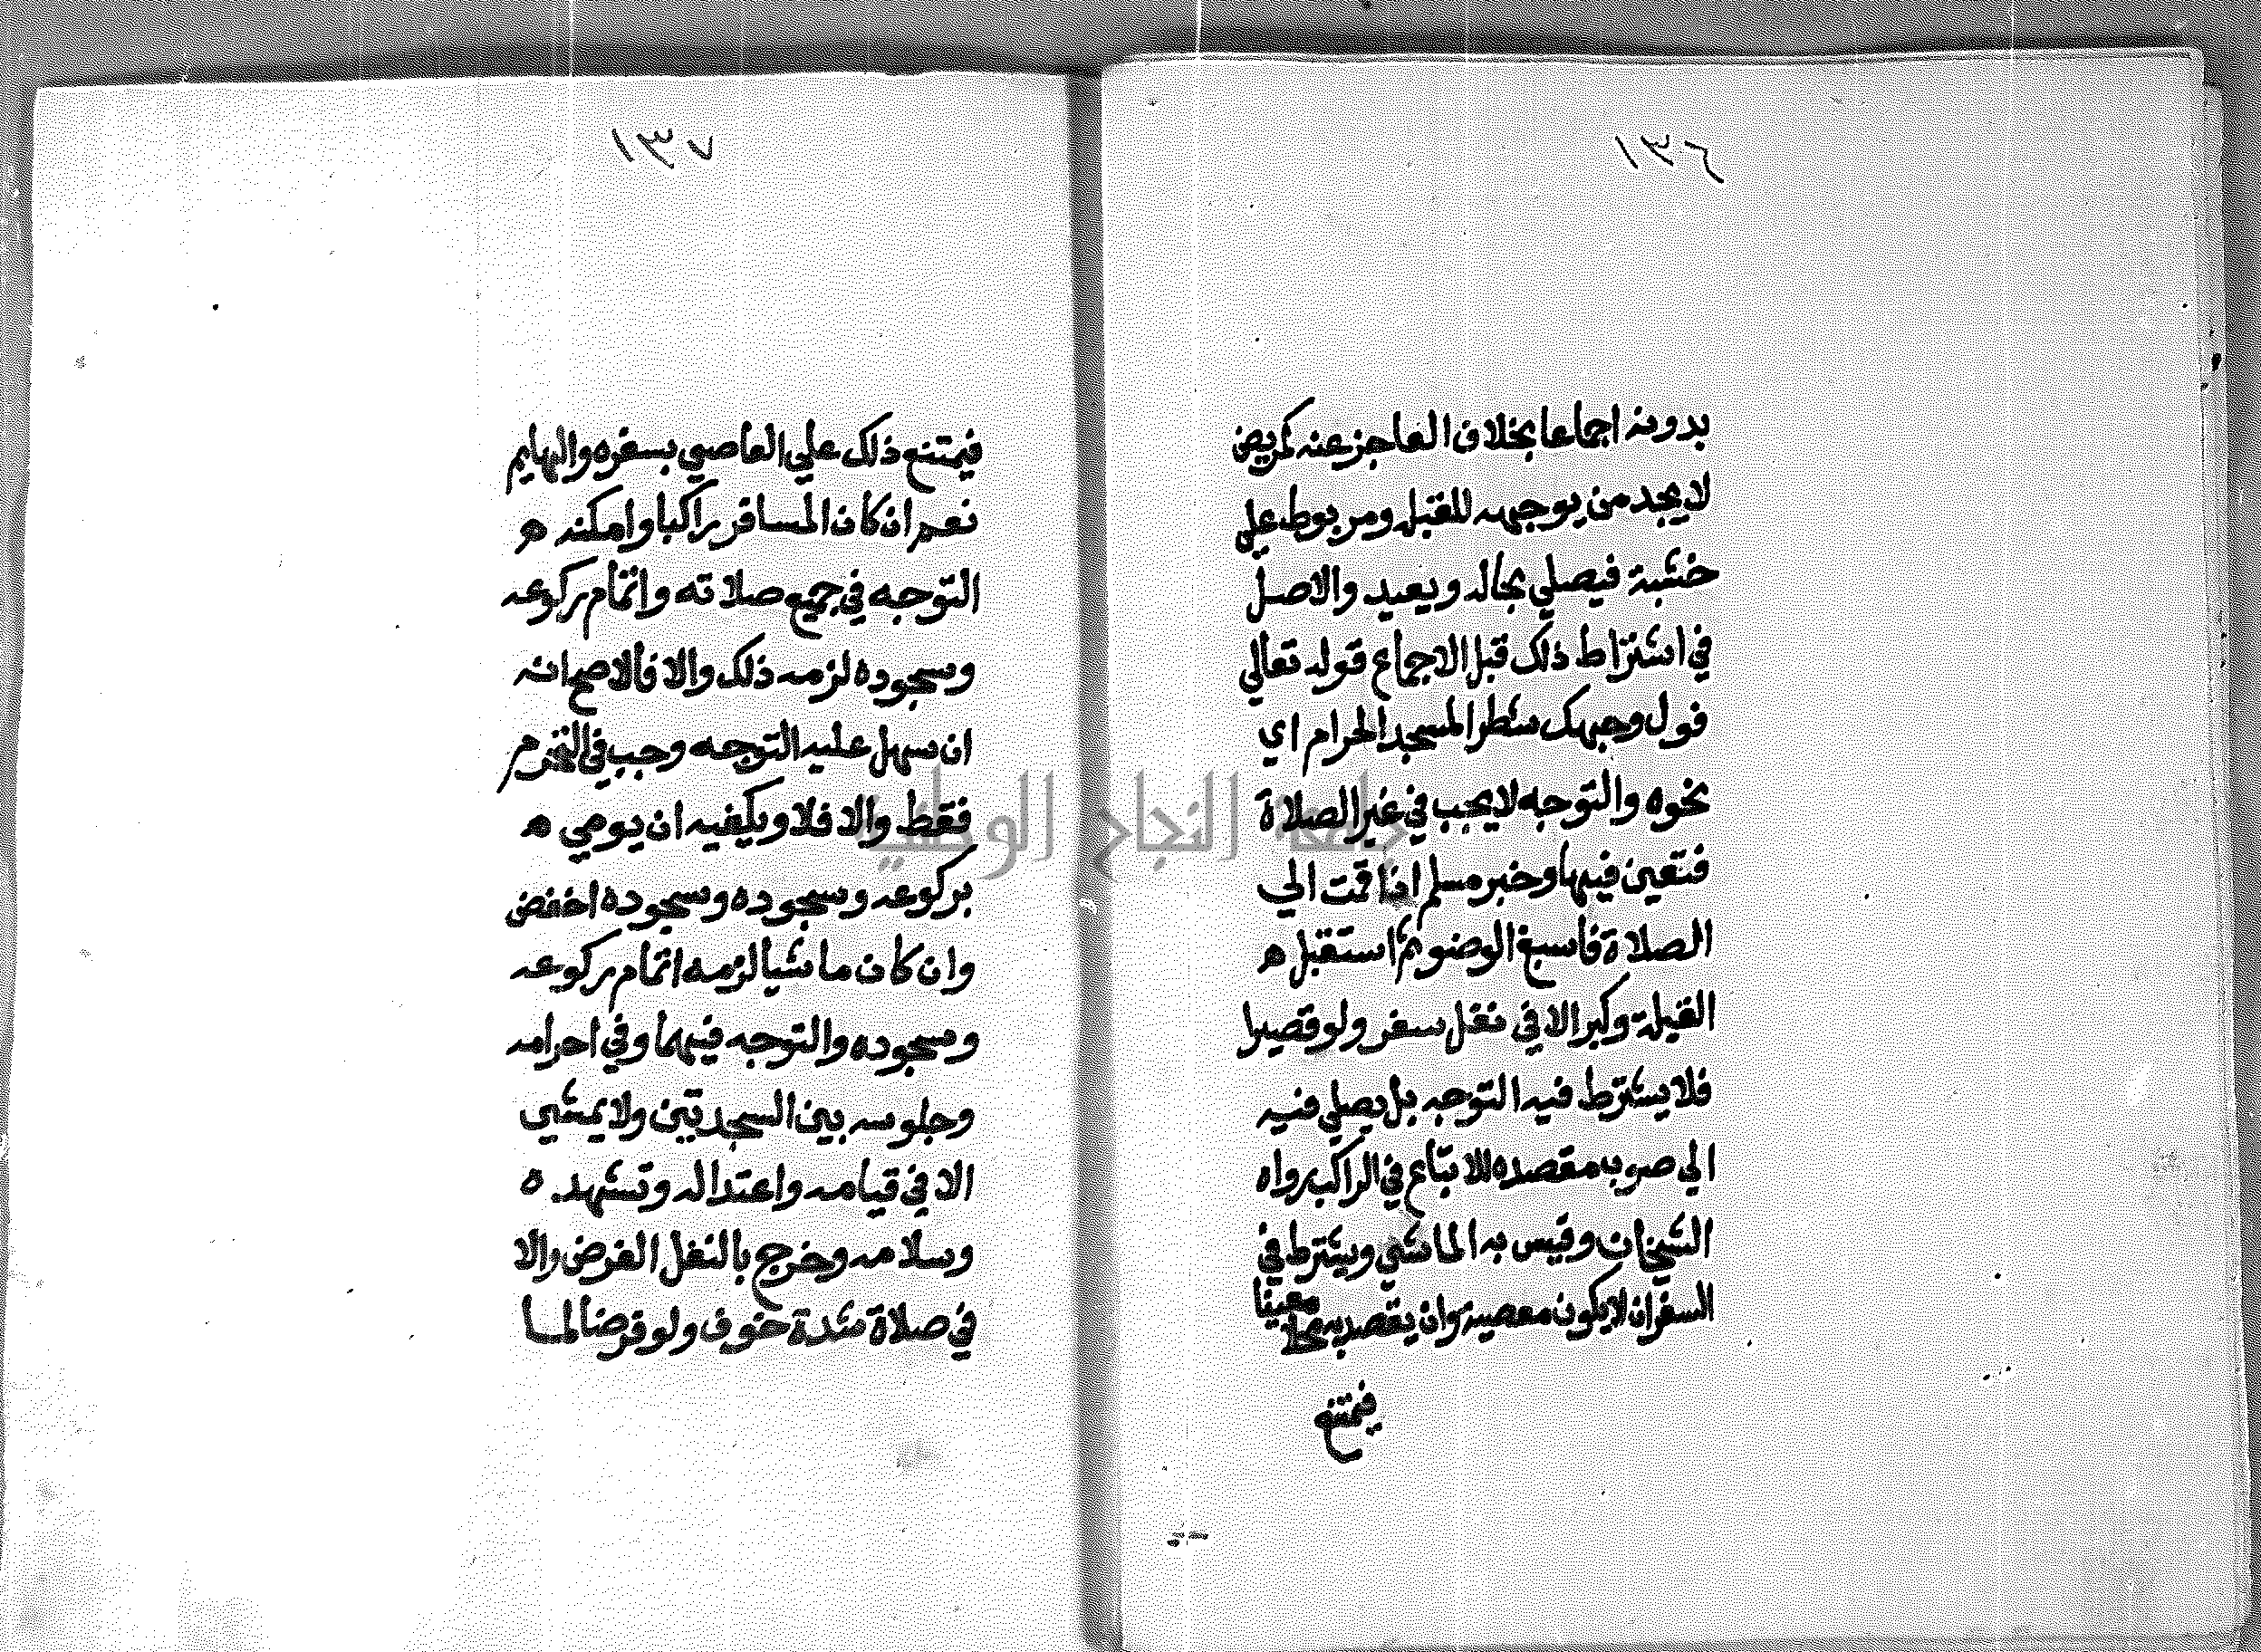 ١٣٦
بدونه اجماعا بخلاف العاجز عنه كمريض
لا يجد من يوجهه للقبله ومربوط علي
خشبة فيصلي بحاله ويعيد والاصل
في اشتراط ذلك قبل الاجماع قوله تعالي
فول وجهك شطر المسجد الحرام اي
نحوه والتوجه لا يجب في غير الصلاة
فتعين فيها وخبر مسلم اذا قمت الي
الصلاة فاسبغ الوضو ثم استقبل ه
القبلة وكبر الا في نفل سفر ولو قصيرا
فلا يشترط فيه التوجه بل يصلي فيه
الي صوب مقصده للاتباع في الراكب رواه
الشيخان وقيس به الماشي ويشترط في
السفر ان لا يكون معصية وان يقصد به محلا
معينا
فيمتنع
١٣٧
فيمتنع ذلك علي العاصي بسفره والهايم
نعم ان كان المسافر راكبا وامكنه ه
التوجه في جميع صلاته واتمام ركوعه
وسجوده لزمه ذلك والا فالاصح انه
ان سهل عليه التوجه وجب في التحرم
فقط والا فلا ويكفيه ان يومي ه
بركوعه وسجوده وسجوده اخفض
وان كان ماشيا لزمه اتمام ركوعه
وسجوده والتوجه فيهما وفي احرامه
وجلوسه بين السجدتين ولا يمشي
الا في قيامه واعتداله وتشهد. ه
وسلامه وخرج بالنفل الفرض والا
في صلاة شدة خوف ولو فرضا لما
جامعة النجاح الوطنية